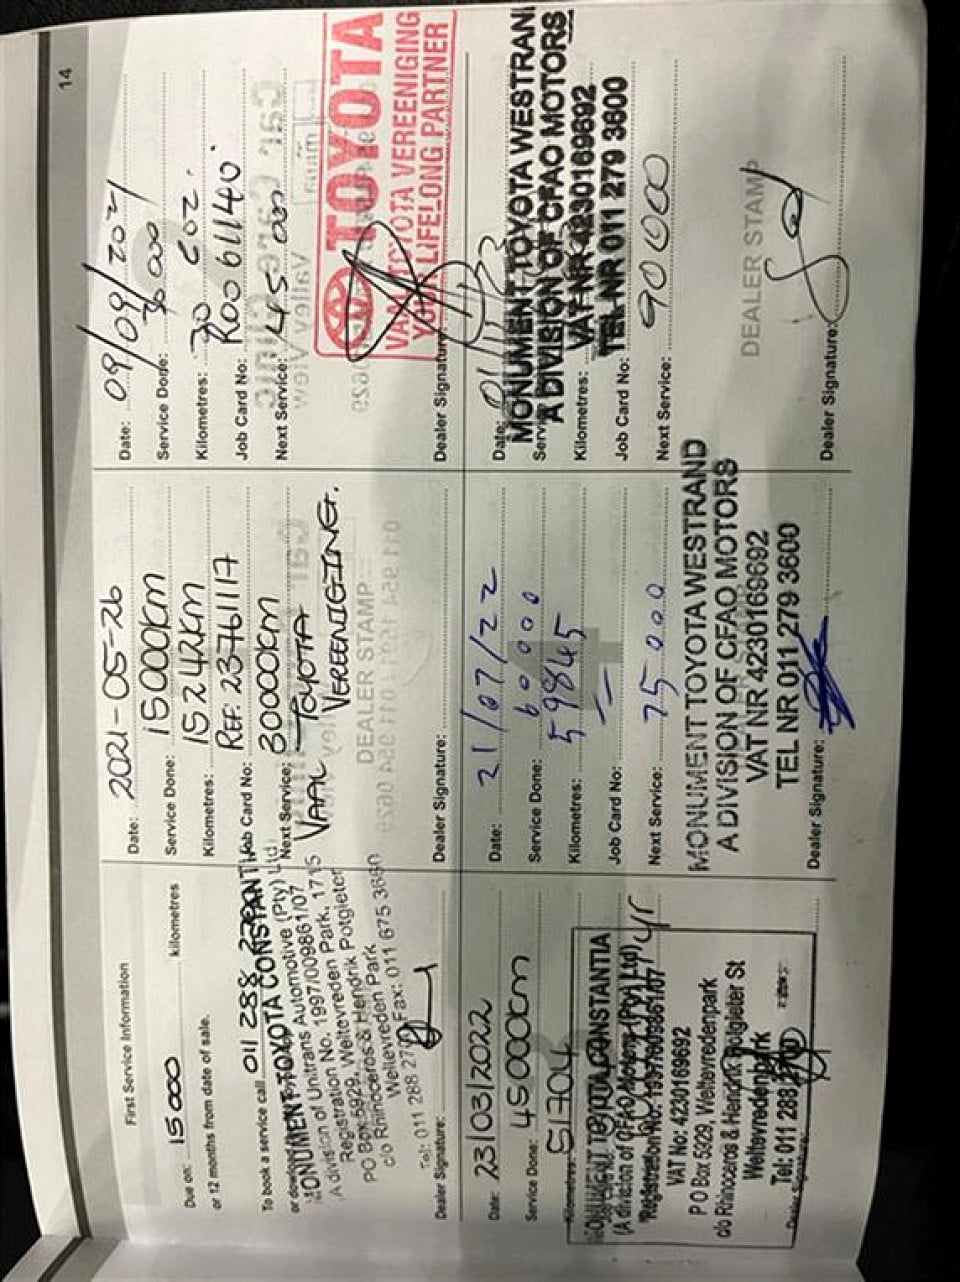 14
First Service Information
Due on: 15000 kilometres
or 12 months from date of sale.
To book a service call 011 288
MONUMENT TOYOTA CONSTANTIA
A division of Unitrans Automotive (Pty) Ltd
Registration No. 1997/009861/07
PO Box 5929, Weltevreden Park, 1715
c/o Rhinoceros & Hendrik Potgieter
Weltevreden Park
Tel: 011 288 Fax: 011 675 3660
Dealer Signature:
Date: 2021-05-26
Service Done: 15000km
Kilometres: 15242km
Job Card No: REF. 23761117
Next Service: 30000km
VAAL TOYOTA
VEREENIGING.
DEALER STAMP
Dealer Signature:
Date: 09/09/2021
Service Done: 30000
Kilometres: 30 602.
Job Card No: R00611140
Next Service: 45 000
TOYOTA
VAAL TOYOTA VEREENIGING
YOUR LIFELONG PARTNER
Dealer Signature:
Date: 23/03/2022
Service Done: 45000km
Kilometres: 51704
MONUMENT TOYOTA CONSTANTIA
(A division of CFAO Motors (Pty) Ltd)
Registration No: 1997/009861/07
VAT No: 4230169692
P O Box 5929, Weltevredenpark
c/o Rhinoceros & Hendrik Potgieter St
Weltevredenpark
Tel: 011 288
Dealer Signature:
Date: 21/07/22
Service Done: 60000
Kilometres: 59845
Job Card No:
Next Service: 75000
MONUMENT TOYOTA WESTRAND
A DIVISION OF CFAO MOTORS
VAT NR 4230169692
TEL NR 011 279 3600
Dealer Signature:
Date:
MONUMENT TOYOTA WESTRAND
A DIVISION OF CFAO MOTORS
Kilometres: VAT NR 4230169692
TEL NR 011 279 3600
Job Card No:
Next Service: 90 000
DEALER STAMP
Dealer Signature: